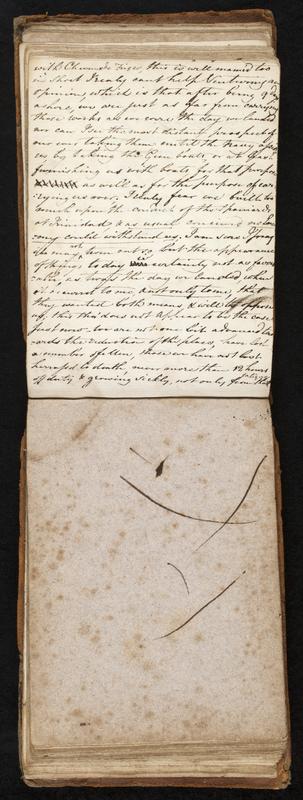 with Chevaux de Frize, this is well manned too
in short I really can't help Venturing an
opinion, which is that after being 9 days
ashore we are just as far from carrying
these works as we were the day we landed
nor can I see the most distant prospect of
our ever taking them until the Navy assist
us by taking the Gun boats, or at least
furnishing us with boats for that purpose
as well as for the purpose of car-
rying us over. I truly fear we built too
much upon the conduct of the Spaniards
at Trinidad & as usual conceived no En-
emy could withstand us. I am sorry I
may not turn out so but the appearance
of things to day is certainly not as favor
able, as twas the day we landed when
it occurred to me, & not only to me, that
they wanted both means & will to oppose
us, this tho' does not appear to be the case
just now. we are not one bit advanced to-
wards the reduction of the place, have lost
a number of Men, those we have not lost
harrass'd to death, never more than 12 hours
off duty, & growing sickly, not only from the